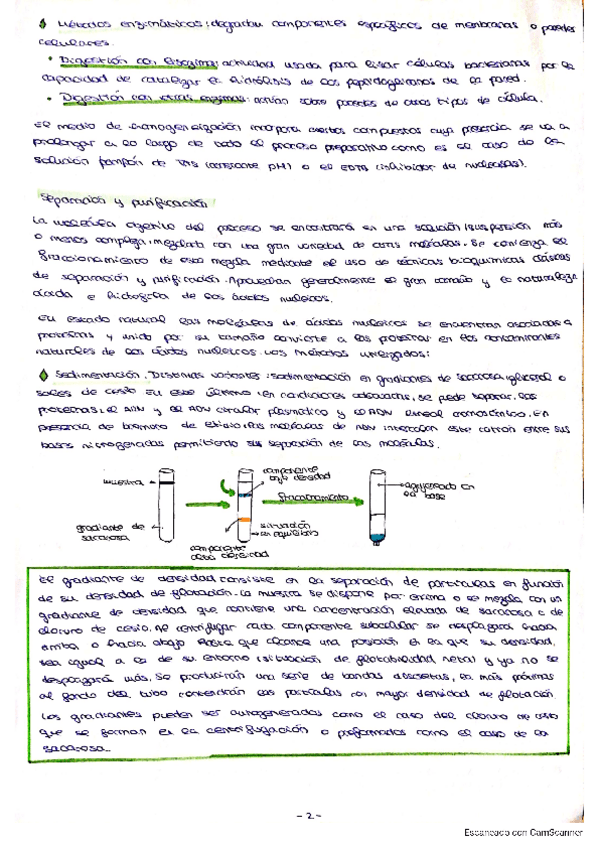 Métodos enzimáticos: degradan componentes específicos de membranas o paredes
celulares.
• Digestión con lisozima: actividad usada para lisar células bacterianas por la
capacidad de catalizar la hidrólisis de los peptidoglicanos de la pared.
• Digestión con otras enzimas: actúan sobre paredes de otros tipos de célula.
El medio de homogeneización incorpora ciertos compuestos cuya presencia se va a
prolongar a lo largo de todo el proceso preparativo como es el caso de la
solución tampón de TRIS (constante pH) o el EDTA (inhibidor de nucleasas).
Separación y purificación
La molécula objetivo del proceso se encontrará en una solución/suspensión más
o menos compleja, mezclada con una gran variedad de otras moléculas. Se comienza el
fraccionamiento de esta mezcla mediante el uso de técnicas bioquímicas clásicas
de separación y purificación. Aprovechan generalmente el gran tamaño y la naturaleza
ácida e hidrófila de los ácidos nucleicos.
En estado natural las moléculas de ácidos nucleicos se encuentran asociadas a
proteínas y unido por su tamaño convierte a las proteínas en los contaminantes
naturales de los ácidos nucleicos. Los métodos utilizados:
Sedimentación. Distintas variantes: sedimentación en gradientes de sacarosa, glicerol o
sales de cesio. En este último (en condiciones adecuadas, se puede separar, las
proteínas, el ARN y el ADN circular plasmídico y el ADN lineal cromosómico. En
presencia de bromuro de etidio, las moléculas de ADN intercalan este catión entre sus
bases nitrogenadas permitiendo la separación de las moléculas.
muestra
gradiente de
sacarosa
componente
baja densidad
fraccionamiento
situación
en equilibrio
componente
alta densidad
agujereado en
la base
El gradiente de densidad consiste en la separación de partículas en función
de su densidad de flotación. La muestra se dispone por encima o se mezcla con un
gradiente de densidad que contiene una concentración elevada de sacarosa o de
cloruro de cesio. Al centrifugar cada componente subcelular se desplazará hacia
arriba o hacia abajo hasta que alcance una posición en la que su densidad
sea igual a la de su entorno (situación de flotabilidad neta) y ya no se
desplazará más. Se producirán una serie de bandas discretas, la más próximas
al fondo del tubo contendrán las partículas con mayor densidad de flotación.
Los gradientes pueden ser autogenerados como el caso del cloruro de cesio
que se forman en la centrifugación o preformados como el caso de la
sacarosa.
- 2 -
Escaneado con CamScanner